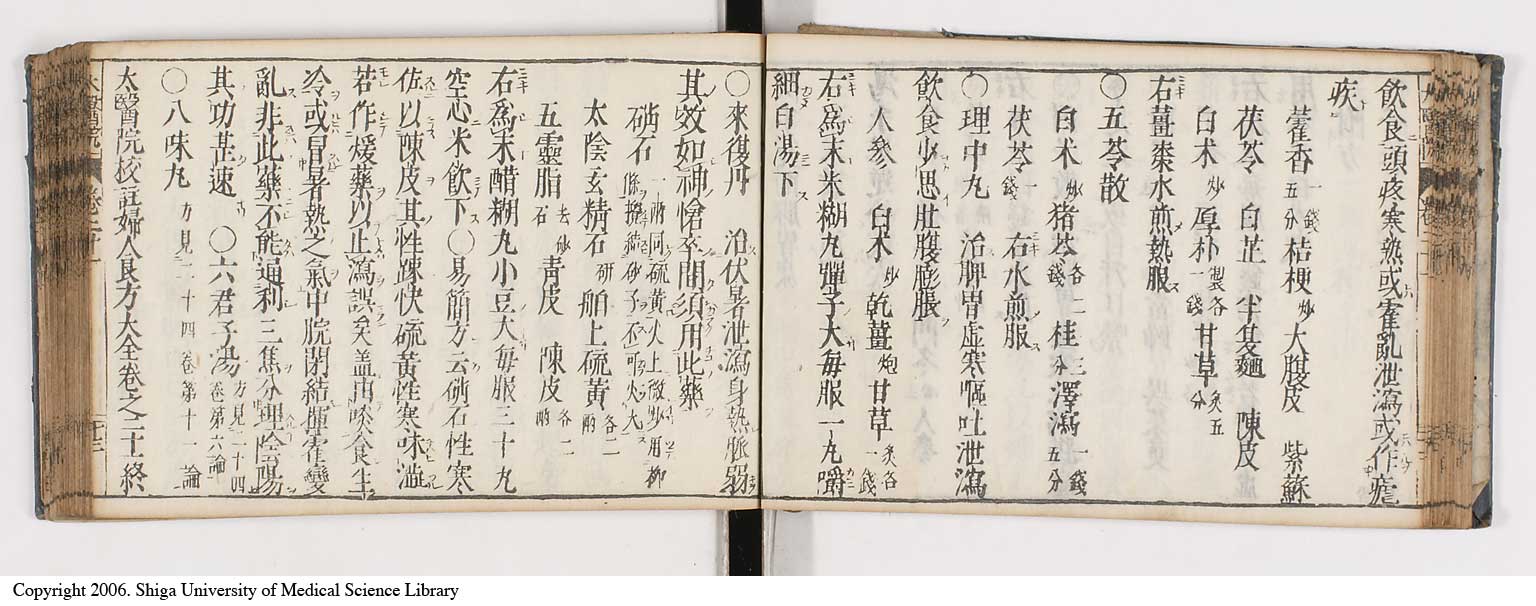 飲食頭疼寒熱或霍亂泄瀉或作瘧
疾
藿香一錢五分 桔梗炒 大腹皮 紫蘇
茯苓 白芷 半夏麯 陳皮
白朮炒 厚朴製各一錢 甘草炙五分
右薑棗水煎熱服
○五苓散
白朮炒 猪苓各一錢 桂二分 澤瀉一錢五分
茯苓一錢 右水煎服
○理中丸 治脾胃虛寒嘔吐泄瀉
飲食少思肚腹膨脹
人參 白朮炒 乾薑炮 甘草炙各一錢
右爲末米糊丸彈子大每服一丸嚼
細白湯下
○來復丹 治伏暑泄瀉身熱脈弱
其效如神愴卒間須用此藥
硝石一兩同硫黄火上微炒用柳條攪結砂子不可火大
太陰玄精石研 舶上硫黄各二兩
五靈脂去砂石 青皮 陳皮各二兩
右爲末醋糊丸小豆大每服三十丸
空心米飲下○易簡方云硝石性寒
佐以陳皮其性疎快硫黄性寒味澁
若作煖藥以止瀉誤矣盖由啖食生
冷或冒暑熱之氣中脘閉結揮霍變
亂非此藥不能通利三焦分理陰陽
其功甚速 ○六君子湯方見二十四卷第六論
○八味丸方見二十四卷第十一論
太醫院校註婦人良方大全卷之二十終
Copyright 2006. Shiga University of Medical Science Library